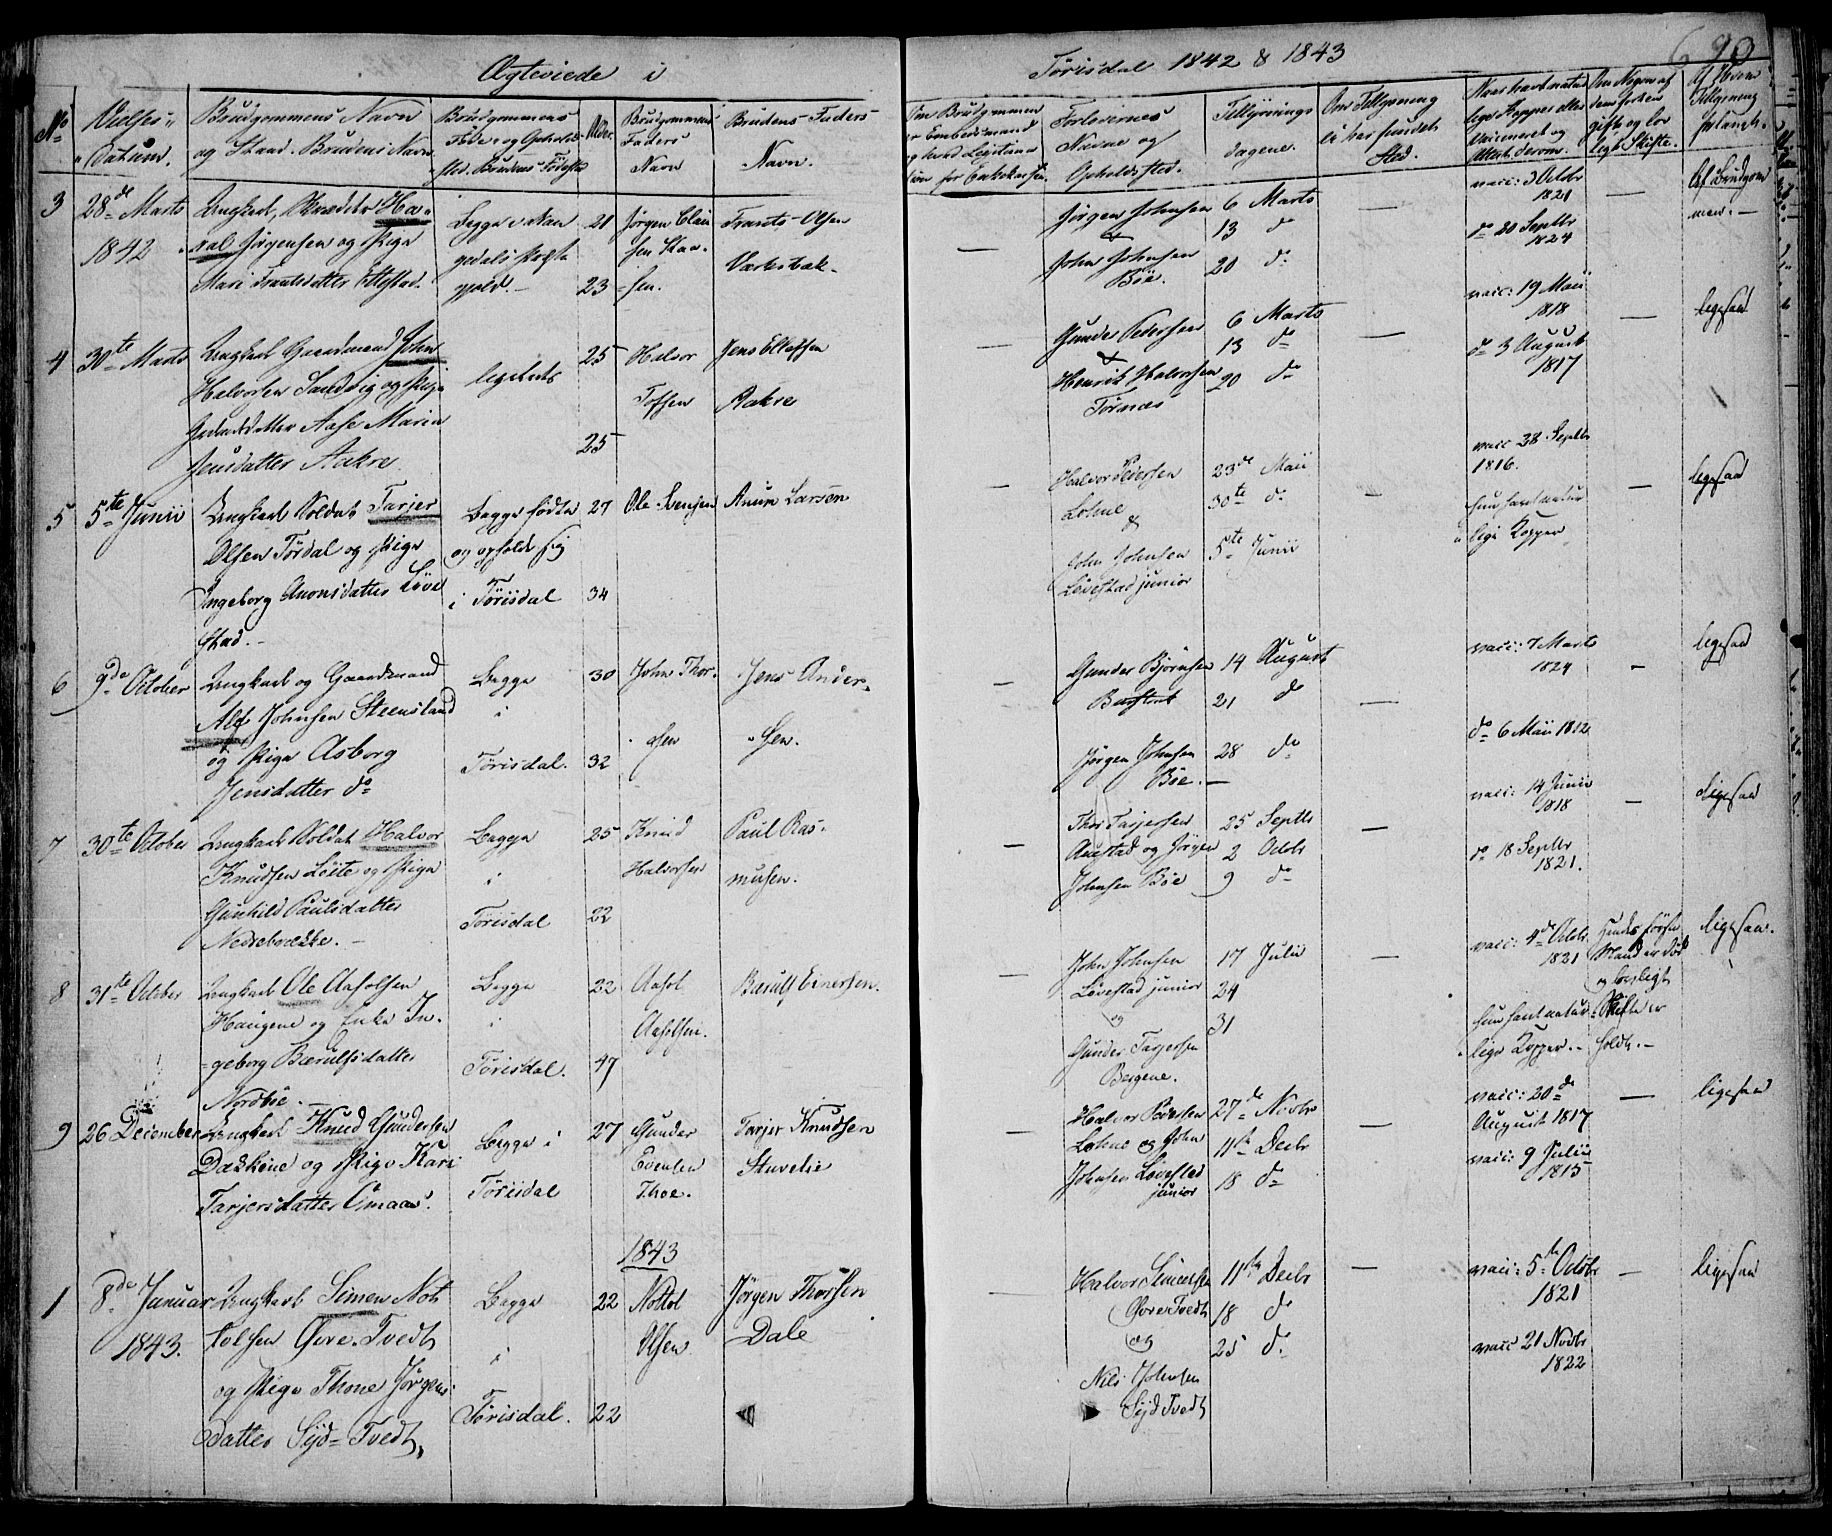 Ægteviede i Törisdal 1842 & 1843
690
No
Vielses-
Datum.
Brudgommens Navn
og Stand. Brudens Navn
Brudgommens
Føde og Opholds
sted. Brudens Føde
Alder
Brudgommens
Faders
Navn
Brudens Faders
Navn.
Om Brudgommen
er Embedsmand
Forlovernes
Navne og
Opholdssted.
Tillysnings
dagene.
Om Tillysning
i Kar fundet
Sted.
Naar havt naturlige Kopper eller
Vaccineret og
Attest derom.
Om Nogen af
dem før har
gift og lov
ligt Skifte.
Af Hvem
Tillysning
forlangt.
3 28de Marts
1842
Ungkarl, Ha-
Jörgensen og Pige
Mari Frantsdatter
Begge
21
23
Jörgen
sen
Frants Olsen
Jörgen Johnsen
&
John Johnsen
Böe.
6 Marts
13 do
20 do
vacc: 3 Octbr
1821
do 20 Septbr
1824
Af Brudgom
men.
4 30te Marts
Ungkarl Gaardmand John
Halvorsen Sandvig og Pige
Aase Marie
Jensdatter Aakre
ligeledes
25
25
Halvor
Jens Ellefsen
Aakre
Gunder Pedersen
&
Henrik Halvorsen
Törnæs
6 Marts
13 do
20 do
vacc: 19 Maii
1818
do 3 August
1817
ligesaa
5 5te Junii
Ungkarl Soldat Tarjer
Olsen Tördal og Pige
Ingeborg Anonsdatter Löve
stad.
Begge födte
og opholde sig
i Törisdal
27
34
Ole Evensen
Anun Larsen
Halvor Pedersen
Lohne
&
John Johnsen
Lövestad junior
23de Maii
30te do
5te Junii
vacc 28 Septbr
1816.
hun havt natur
lige Kopper
ligesaa
6 9de October
Ungkarl og Gaardmand
Alf Johnsen Steensland
og Pige Asborg
Jensdatter do
Begge
i
Törisdal.
30
32
John Thor-
sen
Jens Ander-
sen.
Gunder Björnsen
Jörgen Johnsen
Böe.
14 August
21 do
28 do
vacc: 7 Marts
1824
do 6 Maii 1812
ligesaa
7 30te October
Ungkarl Soldat Halvor
Knudsen Löite og Pige
Gunhild Paulsdatter
Nedrebække.
Begge
i
Törisdal
25
22
Knud
Halvorsen
Paul Ras-
musen.
Thor Tarjersen
og Jörgen
Johnsen Böe
25 Septbr
2 Octbr
9 do
vacc: 14 Junii
1818
do 18 Septbr
1821.
ligesaa
8 31te October
Ungkarl Ole Aasolsen
Haugene og Enke In-
geborg Bærulfsdatter
Nordböe.
Begge
i
Törisdal.
22
47
Aasol
Aasolsen.
Bærulf Einersen.
John Johnsen
Lövestad junior
og
Gunder Tarjersen
Bergene.
17 Julii
24
31
vacc: 4de Octbr
1821
hun havt natur
lige Kopper.
Hendes förste
Mand er död
og lovligt
Skifte er
holdt.
ligesaa.
9 26 December
Ungkarl Knud Gundersen
og Pige Kari
Tarjersdatter Omaas.
Begge i
Törisdal
27
Gunder
Evensen
Thoe.
Tarjer Knudsen
Stuvelie
Halvor Pedersen
Lohne og John
Johnsen Lövestad
junior
27de Novbr
11te Decbr
18 do
vacc: 20de
August 1817
vacc: 9 Julii
1815
ligesaa
1843
1 8de Januar
1843.
Ungkarl Simen Not
tolsen Övre-Tvedt
og Pige Thone Jörgens
Datter Syd-Tvedt
Begge
i
Törisdal.
22
22
Nottol
Olsen
Jörgen Thorsen
Dale
Halvor Simensen
Övre Tvedt
og
Nils Johnsen
Syd Tvedt
11te Decbr
18 do
25 do
vacc: 5te Octbr
1821
vacc 21 Novbr
1822
ligesaa